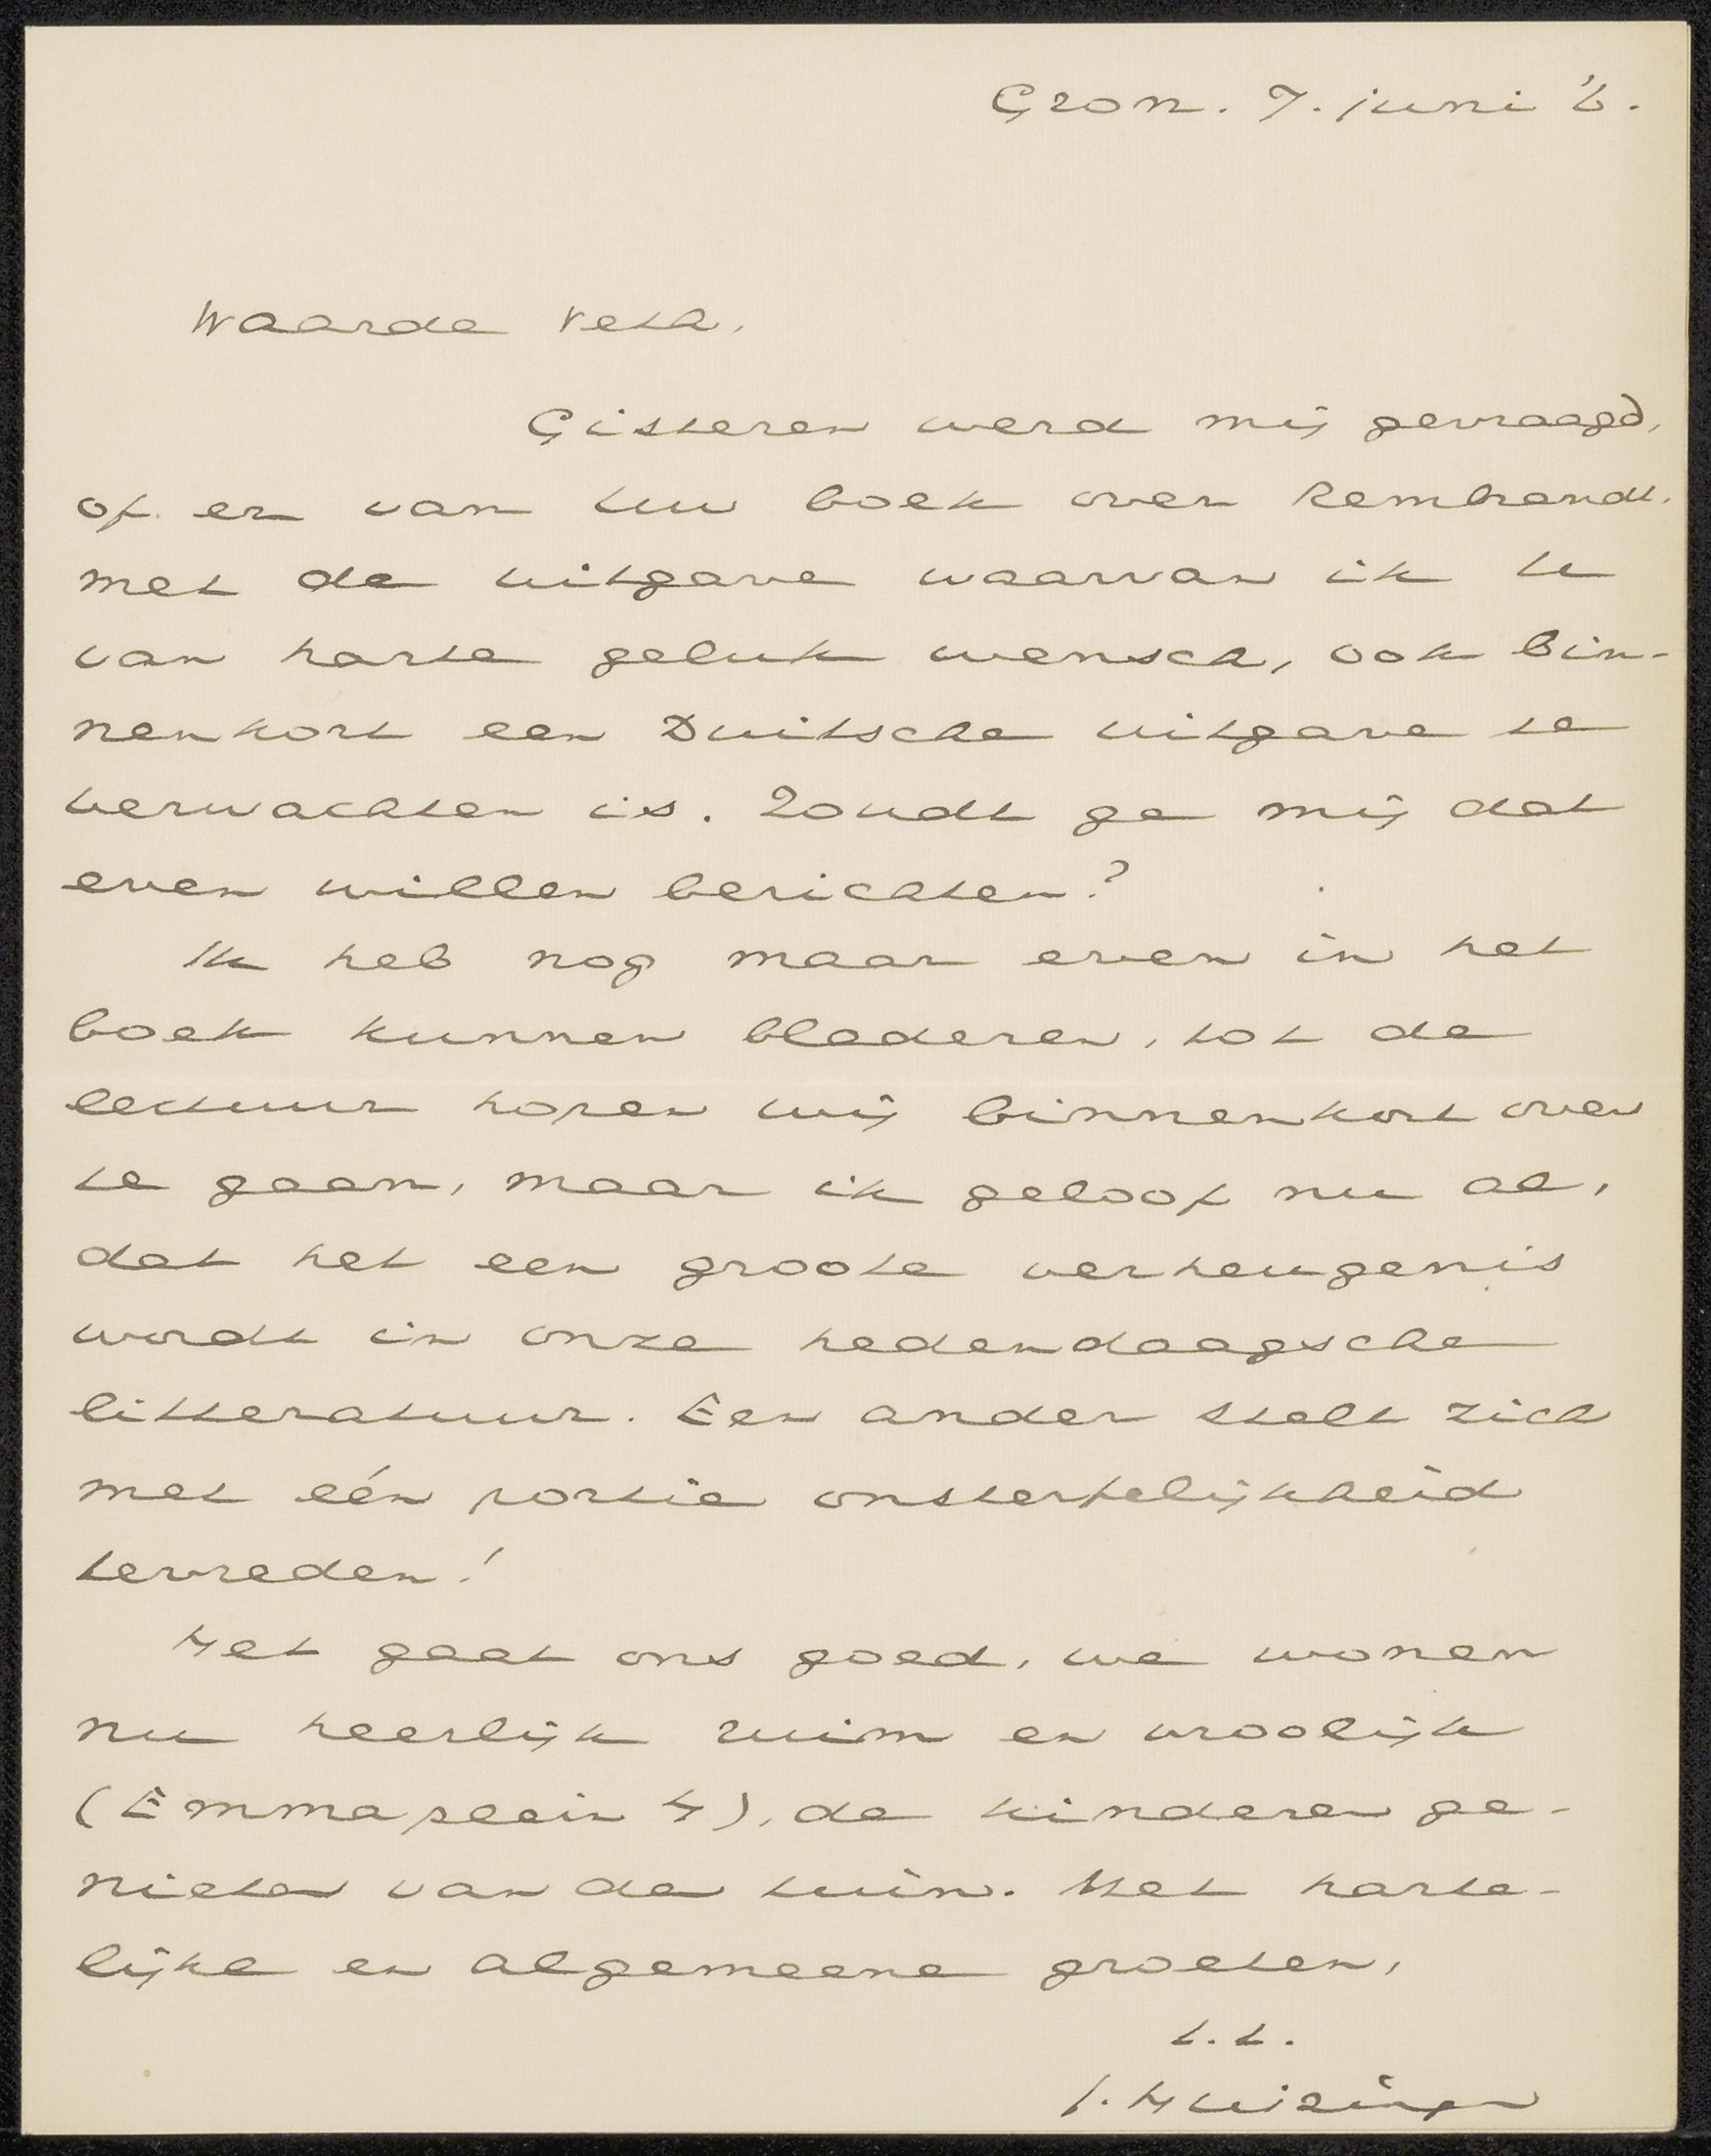 Gron. 7. juni '6.
Waarde Veth,
Gisteren werd mij gevraagd,
of er van uw boek over Rembrandt,
met de uitgave waarvan ik U
van harte geluk wensch, ook bin-
nenkort een Duitsche uitgave te
verwachten is. Zoudt ge mij dat
even willen berichten?
Ik heb nog maar even in het
boek kunnen bladeren, tot de
lectuur hopen wij binnenkort over
te gaan, maar ik geloof nu al,
dat het een groote verheugenis
wordt in onze hedendaagsche
litteratuur. Een ander stelt zich
met eén portie onsterfelijkheid
tevreden!
Het gaat ons goed, we wonen
nu heerlijk ruim en vroolijk
(Emmaplein 4), de kinderen ge-
nieten van de tuin. Met harte-
lijke en algemeene groeten,
t.t.
J. Huizinga